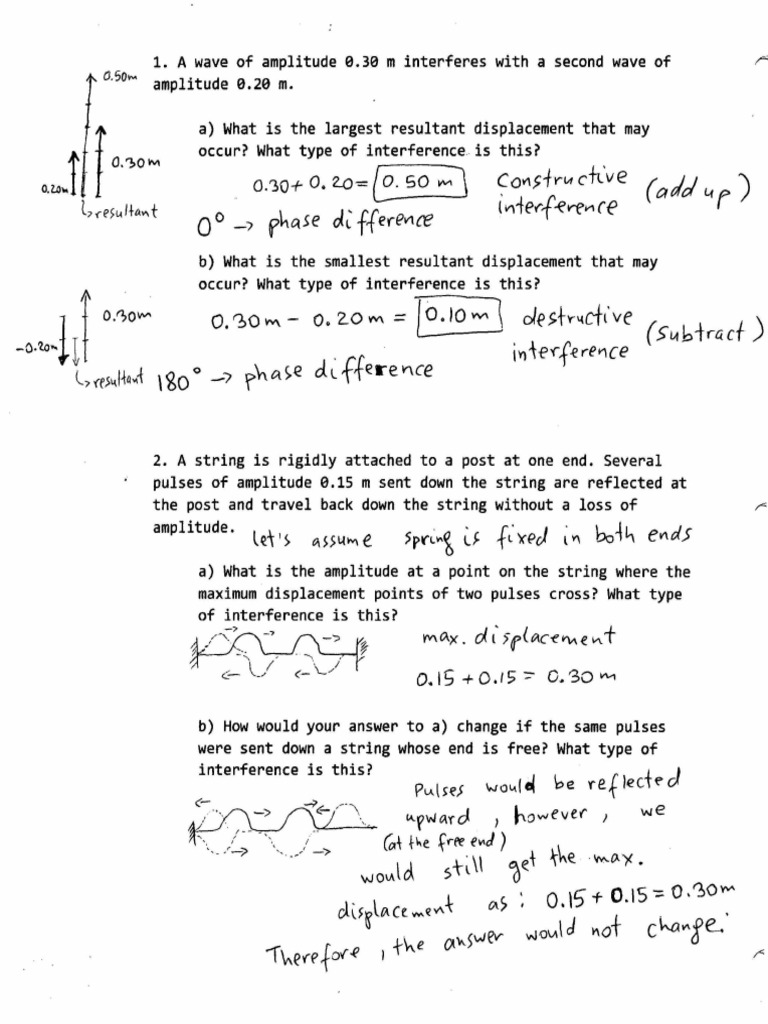 1. A wave of amplitude 0.30 m interferes with a second wave of
amplitude 0.20 m.
0.50m
0.30m
0.20m
↳resultant
a) What is the largest resultant displacement that may
occur? What type of interference is this?
0.30+ 0.20= 0.50 m Constructive
interference (add up)
0° → phase difference
b) What is the smallest resultant displacement that may
occur? What type of interference is this?
0.30m
-0.20m
↳resultant
0.30m - 0.20m = 0.10m destructive
interference (subtract)
180° → phase difference
2. A string is rigidly attached to a post at one end. Several
pulses of amplitude 0.15 m sent down the string are reflected at
the post and travel back down the string without a loss of
amplitude.
let's assume spring is fixed in both ends
a) What is the amplitude at a point on the string where the
maximum displacement points of two pulses cross? What type
of interference is this?
max. displacement
0.15 + 0.15 = 0.30 m
b) How would your answer to a) change if the same pulses
were sent down a string whose end is free? What type of
interference is this?
Pulses would be reflected
upward , however , we
(at the free end)
would still get the max.
displacement as : 0.15 + 0.15 = 0.30m
Therefore , the answer would not change.